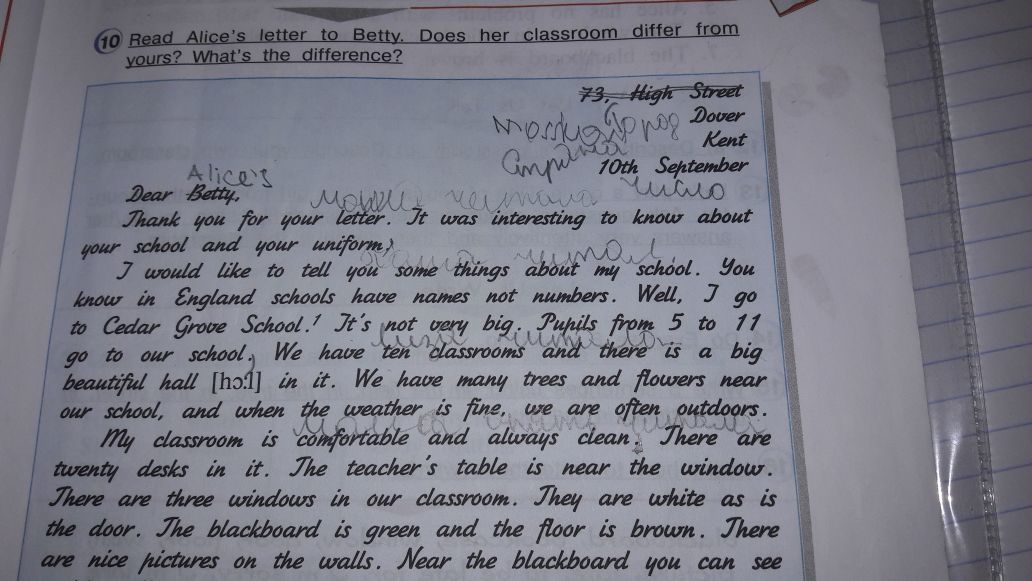 10 Read Alice's letter to Betty. Does her classroom differ from
yours? What's the difference?
73, High Street
Dover
город
Kent
10th September
число
Alice's
Dear Betty,
Thank you for your letter. It was interesting to know about
your school and your uniform.
I would like to tell you some things about my school. You
know in England schools have names not numbers. Well, I go
to Cedar Grove School.¹ It's not very big. Pupils from 5 to 11
go to our school. We have ten classrooms and there is a big
beautiful hall [hɔ:l] in it. We have many trees and flowers near
our school, and when the weather is fine, we are often outdoors.
My classroom is comfortable and always clean. There are
twenty desks in it. The teacher's table is near the window.
There are three windows in our classroom. They are white as is
the door. The blackboard is green and the floor is brown. There
are nice pictures on the walls. Near the blackboard you can see